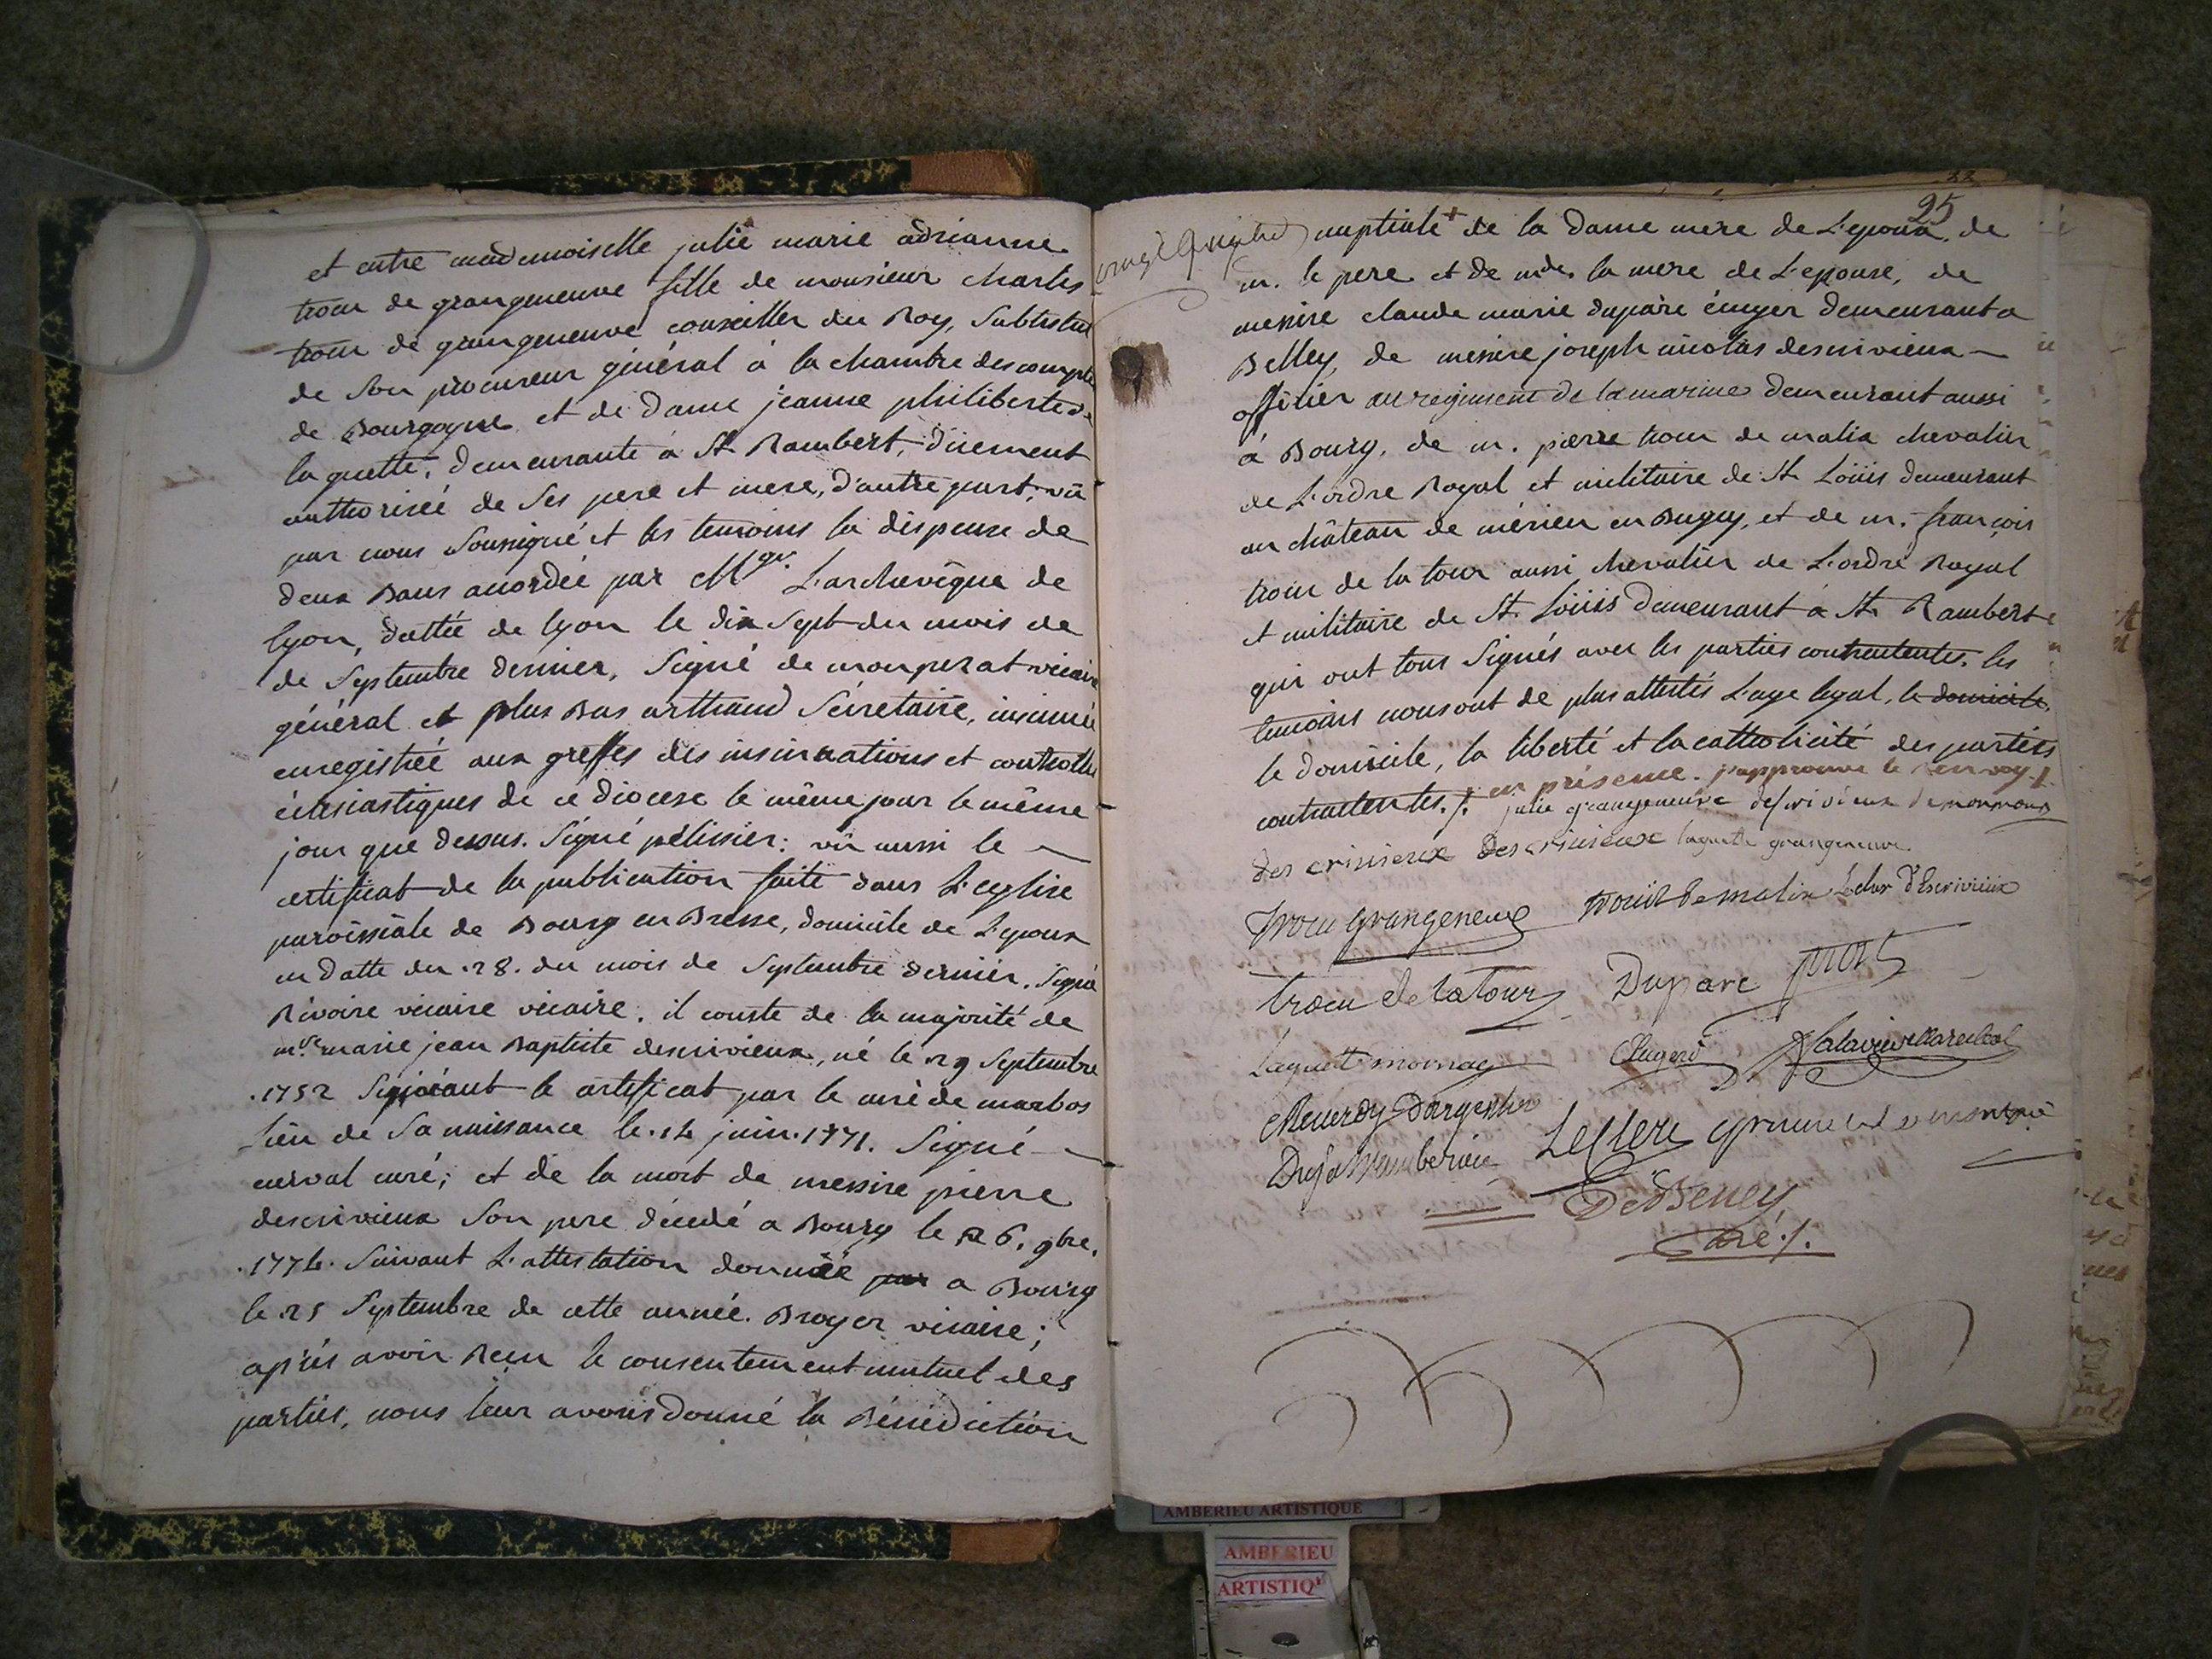 et entre mademoiselle julie marie adrianne
trocu de grangeneuve fille de monsieur charles
trocu de grangeneuve conseiller du Roy, substitut
de son procureur général à la chambre des comptes
de Bourgogne et de dame jeanne philiberte de
laguette, demeurante à St Rambert, düement
authorisée de ses pere et mere, d'autre part; vû
par nous soussigné et les temoins la dispense de
deux Bans accordée par Mgr. L'archevêque de
lyon, dattée de lyon le dix sept du mois de
de septembre dernier, signé de monperat vicaire
général et plus Bas arthaud sécretaire, insinuée
enregistrée aux greffes des insinuations et controlles
éclesiastiques de ce diocese le même jour le même
jour que dessus. signé pelissier; vû aussi le
certificat de la publication faite dans L'eglise
paroissiale de Bourg en Bresse, domicile de L'epoux
en datte du .28. du mois de septembre dernier. signé
Rivoire vicaire vicaire. il conste de la majorité de
mre marie jean Baptiste descrivieux, né le 29 septembre
.1752 suivant le certificat par le curé de marbos
lieu de sa naissance le .14 juin .1771. signé
curval curé; et de la mort de messire pierre
descrivieux son pere décédé a Bourg le 26. 9bre.
.1774. suivant L'attestation donnée par a Bourg
le .25 septembre de cette année. Broyer vicaire;
après avoir Recu le consentement mutuel des
parties, nous leur avons donné la Bénédiction
25
nuptiale + de la dame mere de L'epoux, de
m. le pere et de mde. la mere de L'epouse, de
messire claude marie duparc écuyer demeurant a
Belley, de messire joseph nicolas descrivieux
officier au regiment de la marine demeurant aussi
à Bourg, de m. pierre trocu de malix chevalier
de L'ordre Royal et militaire de St Loüis demeurant
au château de mérieu en Bugey, et de m. françois
trocu de la tour aussi chevalier de L'ordre Royal
et militaire de St. Loüis demeurant à St. Rambert
qui ont tous signés avec les parties contractentes. les
temoins nous ont de plus attestés L'age legal, le domicile
le domicile, la liberté et la catholicité des parties
contractentes. /. + en présence. j'approuve le renvoy /.
julie grangeneuve descrivieux demonmoux
descrivieux descrivieux laguette grangeneuve
trocu grangeneuve trocu de malix L. cher d'Escrivieux
trocu de latour Duparc
Laguette mornay
Leclerc
DeBeney
curé ./.
AMBERIEU ARTISTIQUE
AMBERIEU
ARTISTIQ